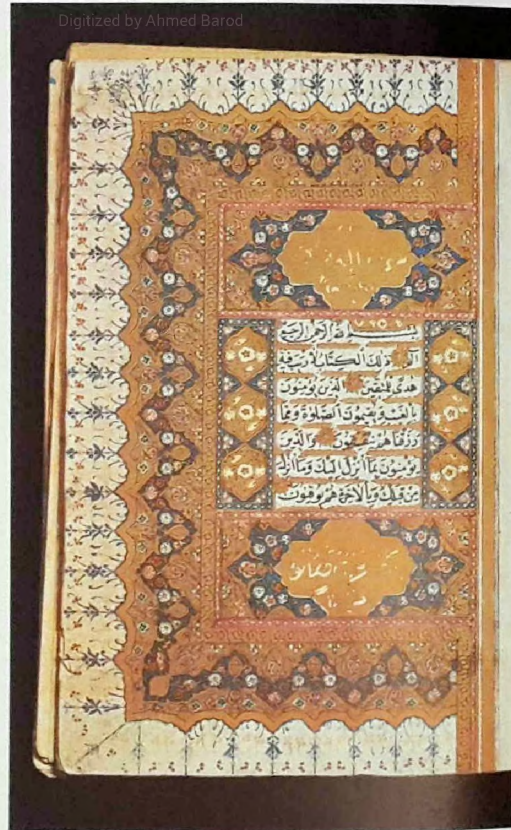 Digitized by Ahmed Barod
بسم الله الرحمن الرحيم
الم ذلك الكتاب لا ريب فيه
هدى للمتقين الذين يؤمنون
بالغيب ويقيمون الصلوة ومما
رزقناهم ينفقون والذين
يؤمنون بما انزل اليك وما انزل
من قبلك وبالاخرة هم يوقنون